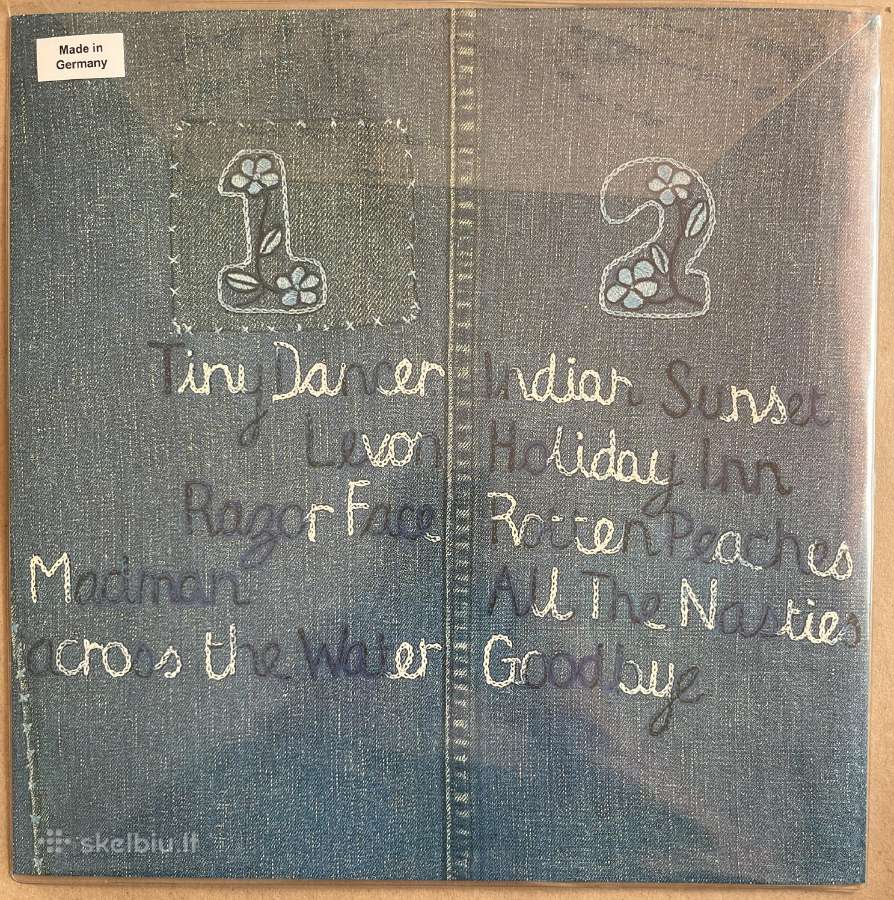 Made in
Germany
1
Tiny Dancer
Levon
Razor Face
Madman
across the Water
2
Indian Sunset
Holiday Inn
Rotten Peaches
All The Nasties
Goodbye
skelbiu.lt